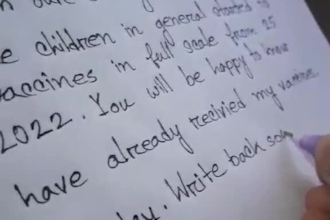 e children in general started to
vaccines in full scale from 25
2022. You will be happy to know
have already recivied my vaccines
ay. Write back soo